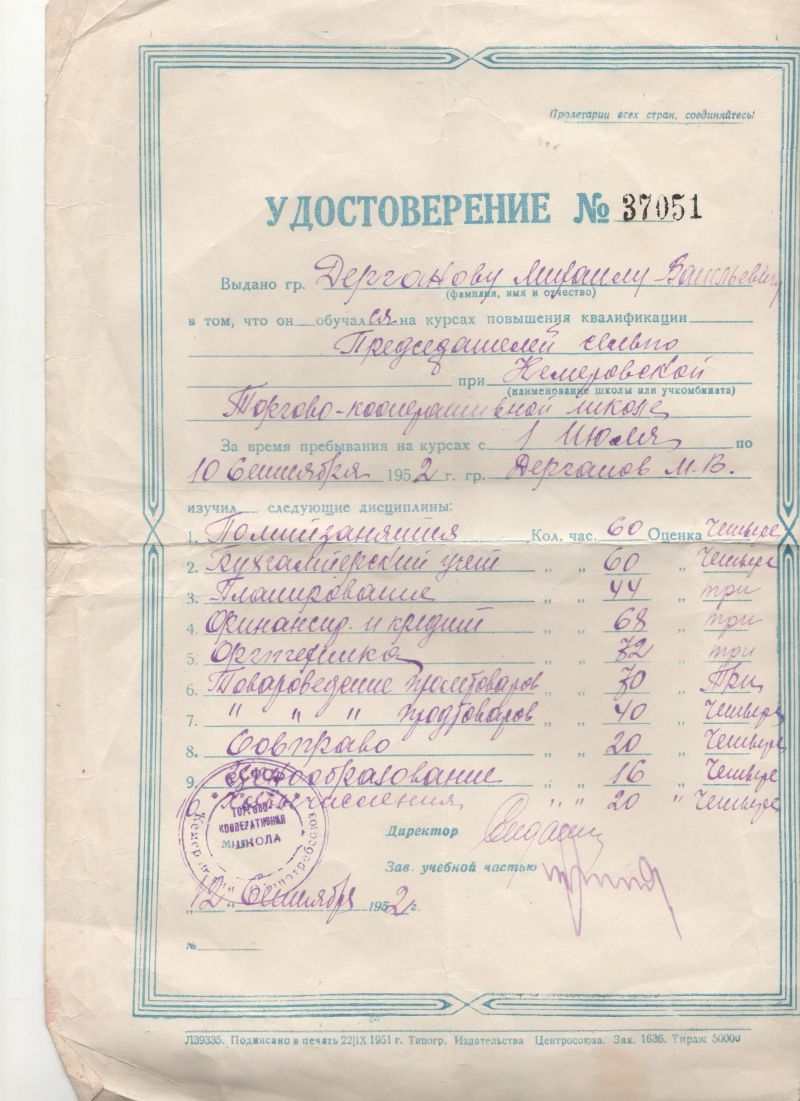 Пролетарии всех стран, соединяйтесь!
УДОСТОВЕРЕНИЕ № 37051
Выдано гр. Дерганову Михаилу Васильевичу
(фамилия, имя и отчество)
в том, что он обучался на курсах повышения квалификации
Председателей сельпо
при Кемеровской
(наименование школы или учкомбината)
Торгово-кооперативной школе
За время пребывания на курсах с 1 Июля по
10 Сентября 1952 г. гр. Дерганов М.В.
изучил следующие дисциплины:
1. Политзанятия Кол. час. 60 Оценка Четыре
2. Бухгалтерский учет „ „ 60 „ Четыре
3. Планирование „ „ 44 „ три
4. Финансир. и кредит „ „ 68 „ три
5. Оргтехника „ „ 72 „ три
6. Товароведение промтоваров „ „ 70 „ Три
7. " " " продтоваров „ „ 40 „ Четыре
8. Совправо „ „ 20 „ Четыре
9. Ценообразование „ „ 16 „ Четыре
10 " " 20 " Четыре
РСФСР
ТОРГОВО-
КООПЕРАТИВНАЯ
ШКОЛА
Директор
Зав. учебной частью
„12" Сентября 1952 г.
№
Л39335. Подписано в печать 22|IX 1951 г. Типогр. Издательства Центросоюза. Зак. 1636. Тираж 50000